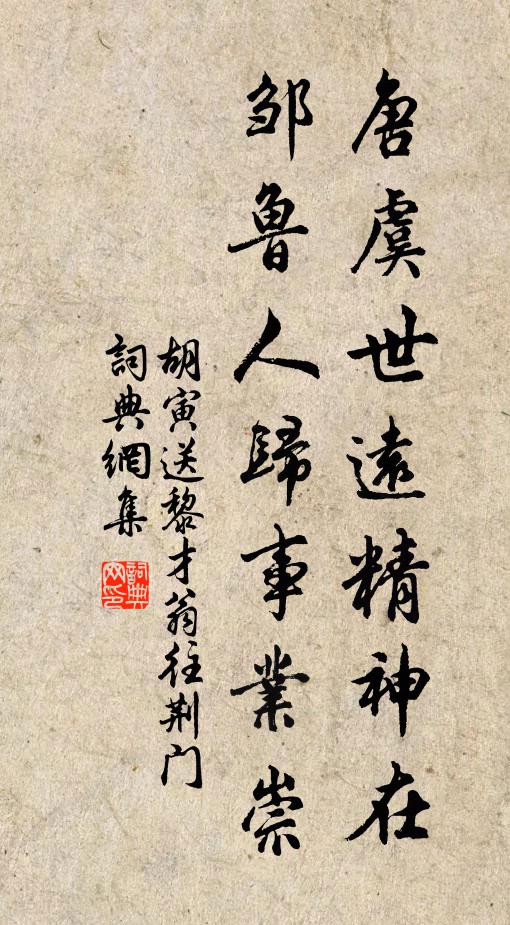 唐虞世遠精神在
邹魯人歸事業崇
胡寅送黎才翁往荆门
詞典網集
詞典网印